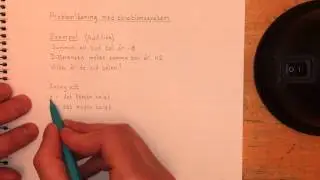 Problemlösning med ekvationssystem
Exempel (Addition)
Summan av två tal är -8
Differensen mellan samma tal är 42
Vilka är de två talen?
Antag att
x = det första talet
det andra talet